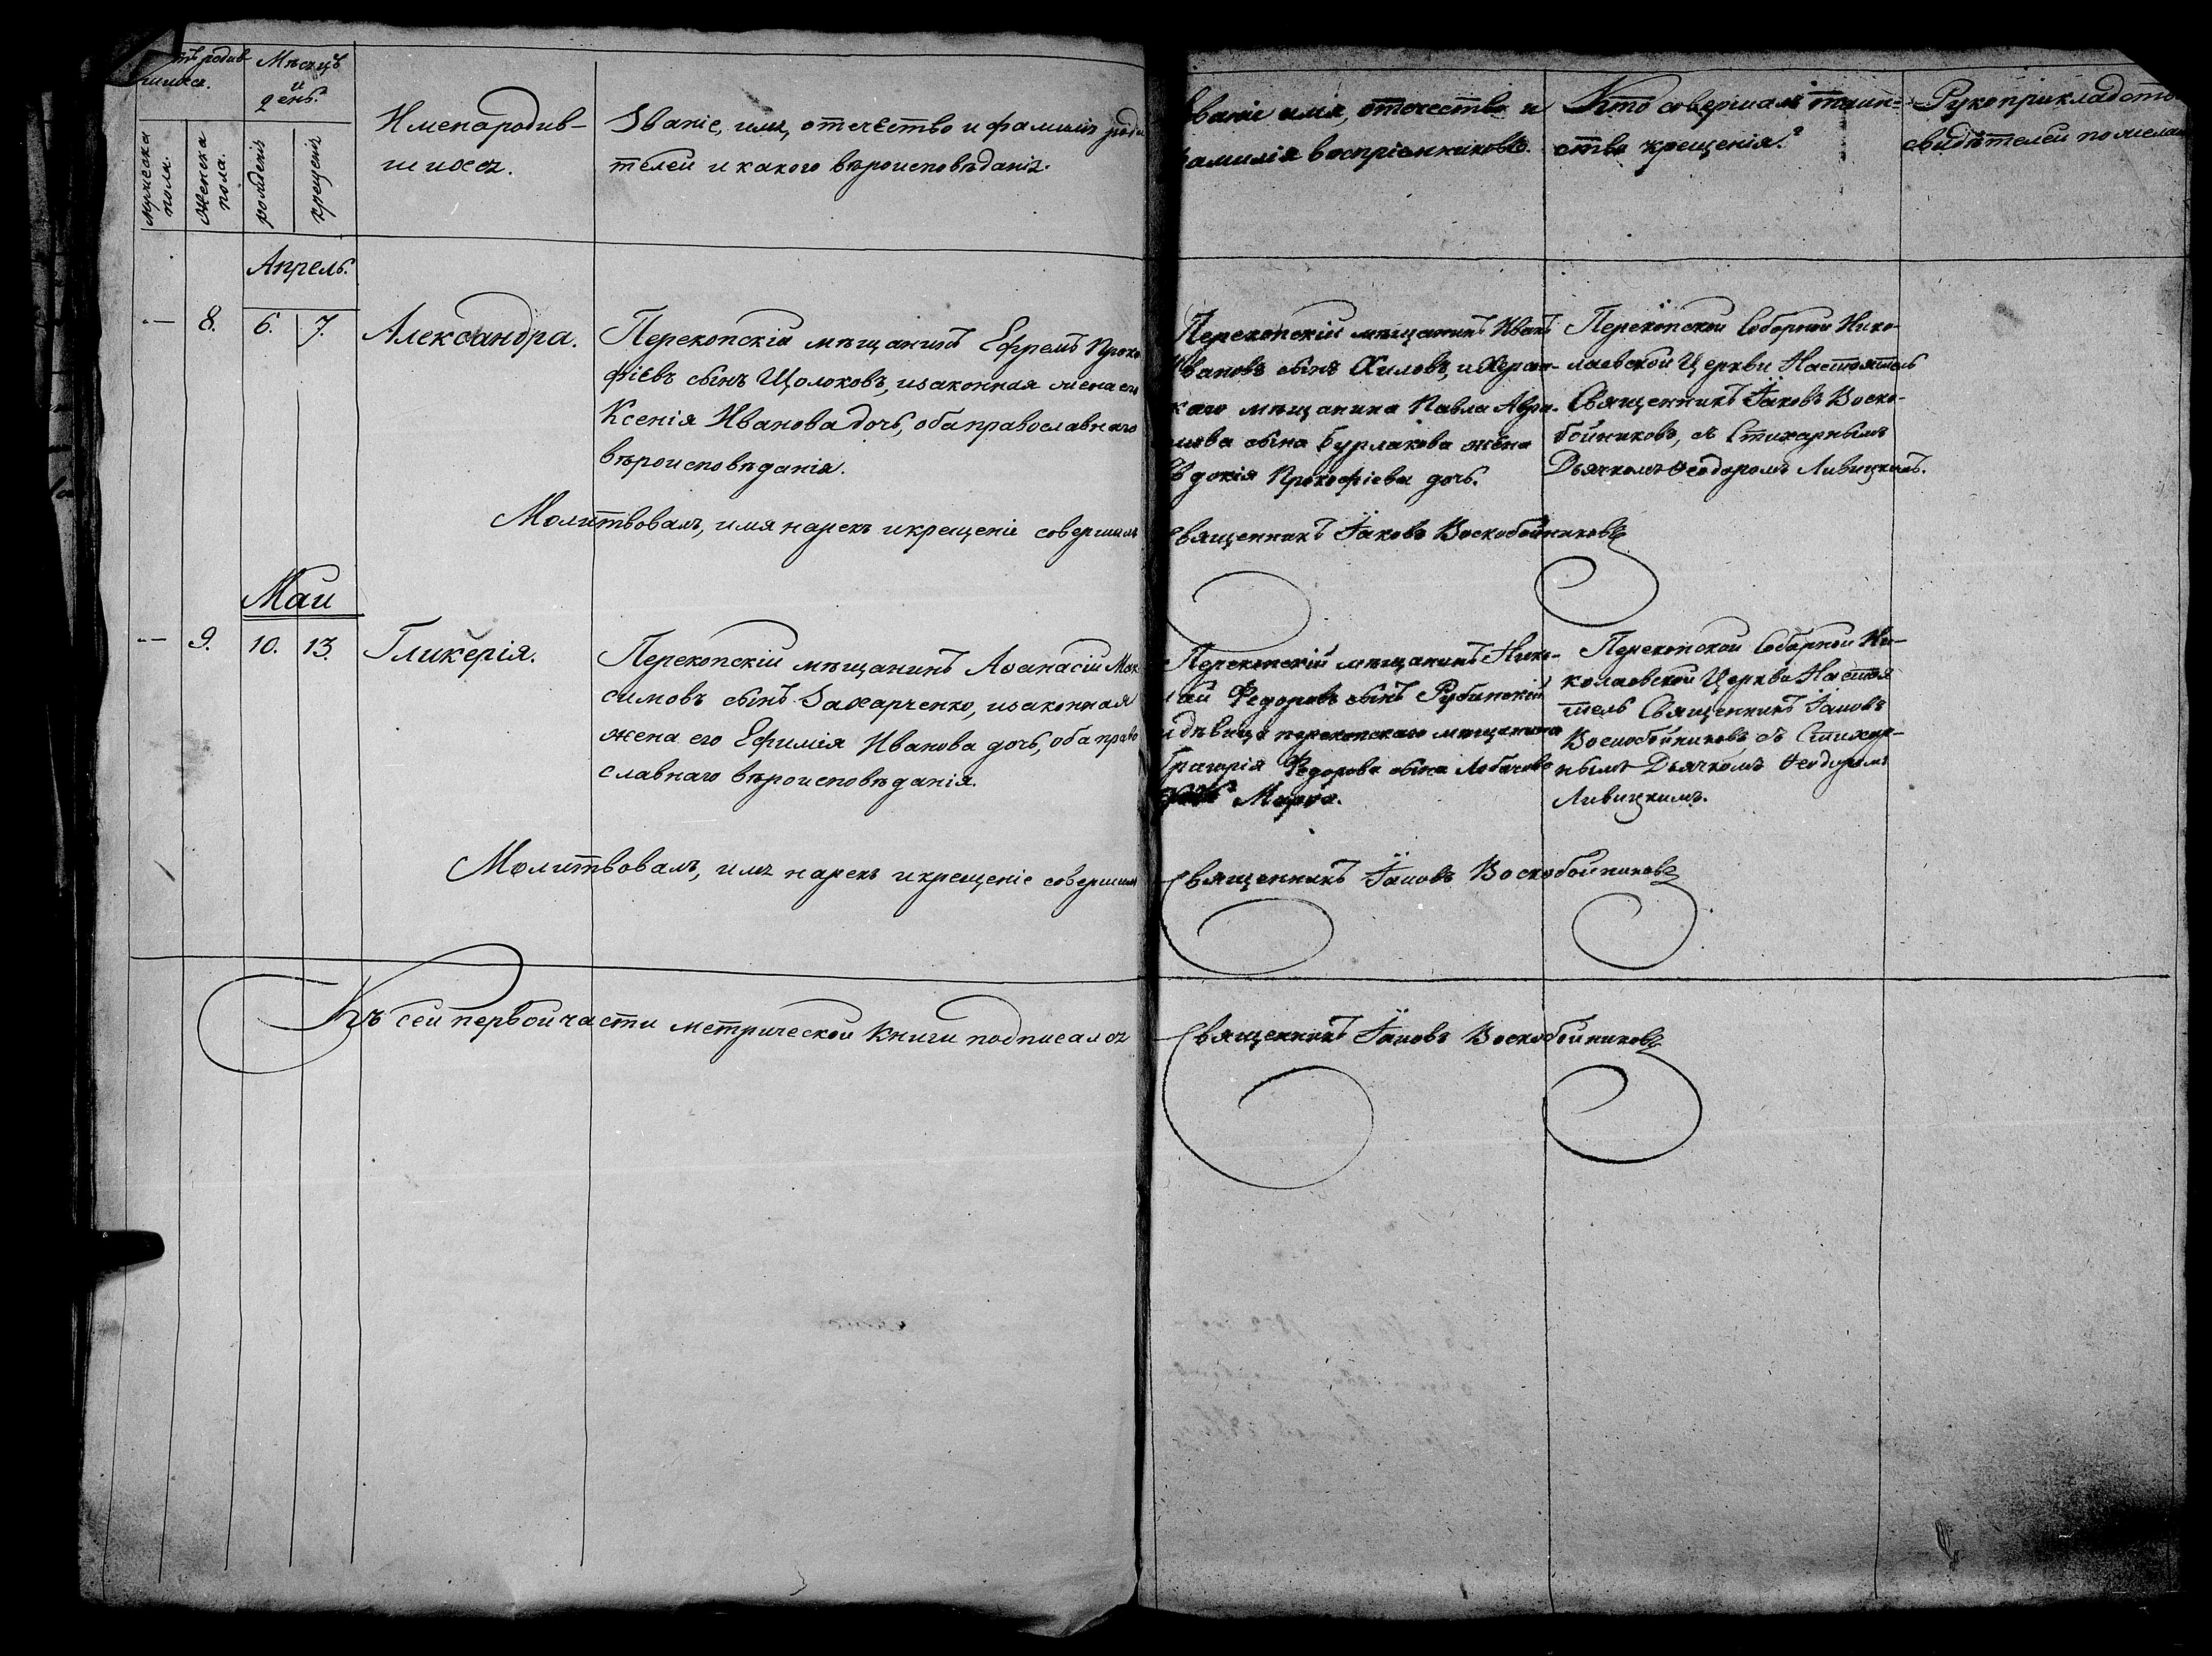 родив-
шихся.
Мѣсяцъ
и
день.
мужеска
пола.
женска
пола.
рожденія
крещенія
Имена родив-
шихся.
Званіе, имя, отечество и фамилія роди
телей и какого вѣроисповѣданія.
Званіе имя, отечество и
фамилія воспріемниковъ.
Кто совершалъ таин-
ство крещенія?
Рукоприкладство
свидѣтелей по желан
Апрель.
8. 6. 7. Александра.
Перекопскій мѣщанинъ Ефремъ Проко
фіевъ сынъ Щолоковъ, и законная жена его
Ксенія Иванова дочь, оба православнаго
вѣроисповѣданія.
Перекопскій мѣщанинъ Иванъ
Ивановъ сынъ Хиловъ, и Херсон-
скаго мѣщанина Павла Авра-
сына Бурлакова жена
Евдокія Прокофіева дочь.
Перекопской Соборной Нико-
лаевской Церкви Настоятель
Священникъ Іаковъ Воско-
бойниковъ, съ Стихарнымъ
Дьячкомъ Ѳеодоромъ Ливицкимъ.
Молитвовалъ, имя нарекъ и крещеніе совершилъ
Священникъ Іаковъ Воскобойниковъ
Маи
9. 10. 13. Гликерія.
Перекопскій мѣщанинъ Аѳанасій Мак
симовъ сынъ Захарченко, и законная
жена его Ефимія Иванова дочь, оба право
славнаго вѣроисповѣданія.
Перекопскій мѣщанинъ Нико-
лай Федоровъ сынъ Рубинскій
и дѣвица перекопскаго мѣщанина
Григорія Федорова сына Лобачева
Марѳа.
Перекопской Соборной Ни-
колаевской Церкви Настоя
тель Священникъ Іаковъ
Воскобойниковъ съ Стихар-
нымъ Дьячкомъ Ѳеодоромъ
Ливицкимъ.
Молитвовалъ, имя нарекъ и крещеніе совершилъ
Священникъ Іаковъ Воскобойниковъ
Къ сей первой части метрической книги подписался
Священникъ Іаковъ Воскобойниковъ